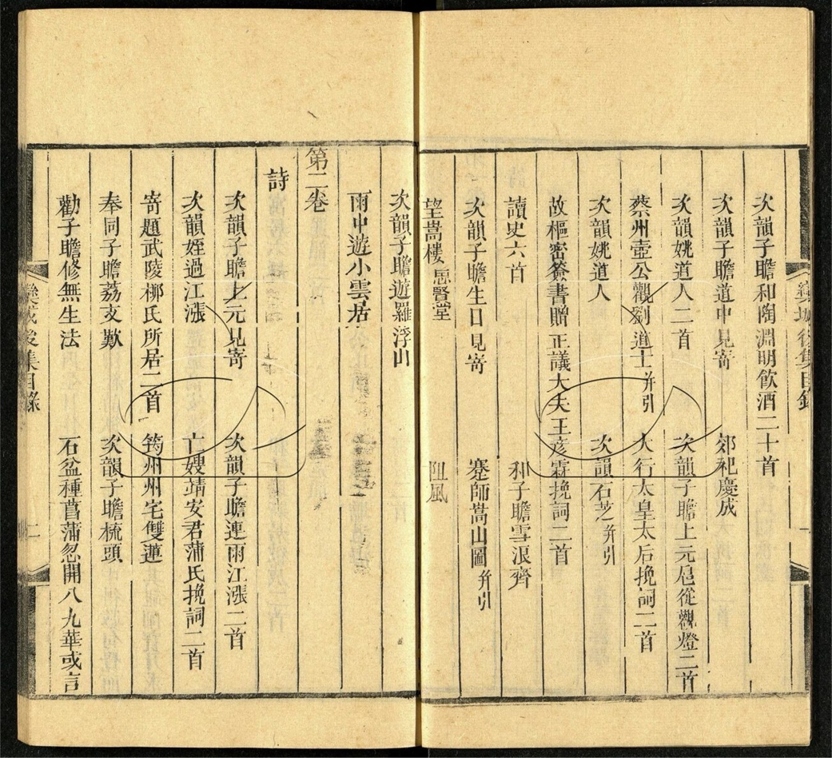 次韻子瞻和陶淵明飲酒二十首
次韻子瞻道中見寄 郊祀慶成
次韻姚道人二首 次韻子瞻上元扈從觀燈二首
蔡州壺公觀劉道士并引 大行太皇太后挽詞二首
次韻姚道人 次韻石芝并引
故樞密簽書贈正議大夫王彥霖挽詞二首
讀史六首 和子瞻雪浪齊
次韻子瞻生日見寄 蹇師嵩山圖并引
望嵩樓 思賢堂 阻風
次韻子瞻遊羅浮山
雨中遊小雲居
第二卷
詩
次韻子瞻上元見寄 次韻子瞻連雨江漲二首
次韻姪過江漲 亡嫂靖安君蒲氏挽詞二首
寄題武陵柳氏所居二首 筠州州宅雙蓮
奉同子瞻荔支歎 次韻子瞻梳頭
勸子瞻修無生法 石盆種菖蒲忽開八九華或言
欒城後集目錄 二